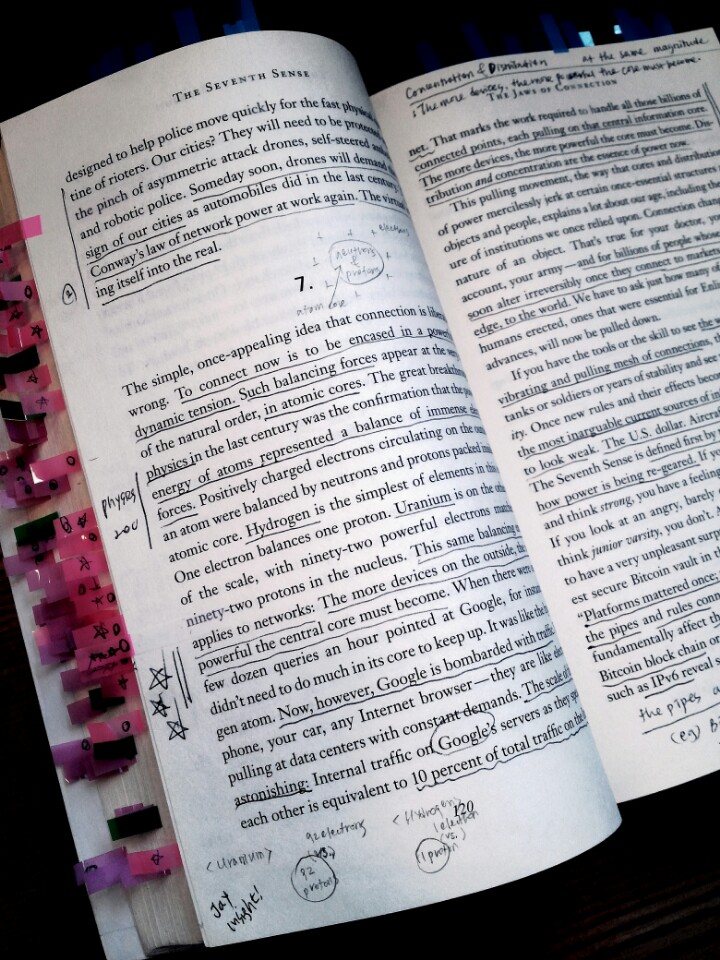 THE SEVENTH SENSE
designed to help police move quickly for the fast
tine of rioters. Our cities? They will need to be
the pinch of asymmetric attack drones, self-steered
and robotic police. Someday soon, drones will demand
sign of our cities as automobiles did in the last century.
Conway's law of network power at work again. The
ing itself into the real.
2
neutrons
&
protons
7.
atom core
The simple, once-appealing idea that connection is
wrong. To connect now is to be encased in a
dynamic tension. Such balancing forces appear at the
of the natural order, in atomic cores. The great
physics in the last century was the confirmation that the
energy of atoms represented a balance of immense
forces. Positively charged electrons circulating on the
an atom were balanced by neutrons and protons packed
atomic core. Hydrogen is the simplest of elements in this
One electron balances one proton. Uranium is on the
of the scale, with ninety-two powerful electrons
ninety-two protons in the nucleus. This same balancing
applies to networks: The more devices on the outside, the
powerful the central core must become. When there were
few dozen queries an hour pointed at Google, for
didn't need to do much in its core to keep up. It was like the
gen atom. Now, however, Google is bombarded with
phone, your car, any Internet browser—they are like
pulling at data centers with constant demands. The scale
astonishing: Internal traffic on Google's servers as they
each other is equivalent to 10 percent of total traffic on the
physics
120
<Uranium>
92 electrons
(vs.)
92
protons
<Hydrogen>
1 electron
(vs.)
1 proton
Jay
insight!
Concentration & Distribution at the same magnitude
: The more devices, the more powerful the core must become.
THE JAWS OF CONNECTION
net. That marks the work required to handle all those billions of
connected points, each pulling on that central information core.
The more devices, the more powerful the core must become. Dis-
tribution and concentration are the essence of power now.
This pulling movement, the way that cores and
of power mercilessly jerk at certain once-essential structures
objects and people, explains a lot about our age, including the
ure of institutions we once relied upon. Connection
nature of an object. That's true for your doctor,
account, your army—and for billions of people whose
soon alter irreversibly once they connect to
edge, to the world. We have to ask just how many
humans erected, ones that were essential for
advances, will now be pulled down.
If you have the tools or the skill to see the
vibrating and pulling mesh of connections,
tanks or soldiers or years of stability and
ity. Once new rules and their effects
the most inarguable current sources of
to look weak. The U.S. dollar.
The Seventh Sense is defined first by
how power is being re-geared. If
and think strong, you have a
If you look at an angry, barely
think junior varsity, you don't.
to have a very unpleasant
est secure Bitcoin vault in
"Platforms mattered once:
the pipes and rules
fundamentally affect
Bitcoin block chain
such as IPv6 reveal
the pipes
(eg)